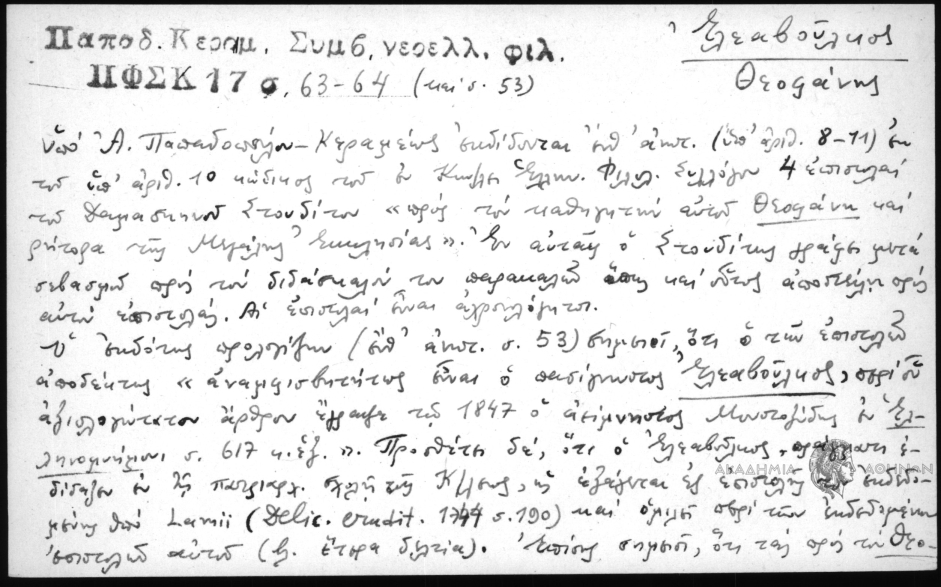 Παποδ. Κεραμ. Συμβ. νεοελλ. φιλ.
Ἐλεαβοῦλκος
ΠΦΣΚ 17 σ. 63-64 (καὶ σ. 53)
Θεοφάνης
Ὑπὸ Ἀ. Παπαδοπούλου-Κεραμέως ἐκδίδονται ἐνθ' ἀνωτ. (ὑπ' ἀριθ. 8-11) ἐκ
τοῦ ὑπ' ἀριθ. 10 κώδικος τοῦ ἐν Κων/λει Ἑλλην. Φιλολ. Συλλόγου 4 ἐπιστολαὶ
τοῦ Δαμασκηνοῦ Στουδίτου «πρὸς τὸν καθηγητὴν αὐτοῦ Θεοφάνη καὶ
ρήτορα τῆς Μεγάλης Ἐκκλησίας». Ἐν αὐταῖς ὁ Στουδίτης γράφει μετὰ
σεβασμοῦ πρὸς τὸν διδάσκαλόν του παρακαλῶν ὅπως καὶ οὗτος ἀποστείλῃ πρὸς
αὐτὸν ἐπιστολάς. Αἱ ἐπιστολαὶ εἶναι ἀχρονολόγητοι.
Ὁ ἐκδότης προλογίζων (ἐνθ' ἀνωτ. σ. 53) σημειοῖ, ὅτι ὁ τῶν ἐπιστολῶν
ἀποδέκτης «ἀναμφισβητήτως εἶναι ὁ πασίγνωστος Ἐλεαβοῦλκος, περὶ οὗ
ἀξιολογώτατον ἄρθρον ἔγραψε τῷ 1847 ὁ ἀείμνηστος Μουστοξύδης ἐν Ἑλ-
ληνομνήμονι σ. 617 κ.ἑξ.». Προσθέτει δέ, ὅτι ὁ Ἐλεαβοῦλκος ἐ-
δίδαξεν ἐν τῇ πατριαρχ. σχολῇ τῆς Κ/λεως, ὡς ἐξάγεται ἐξ ἐπιστολῆς ἐκδεδο-
μένης ὑπὸ Lamii (Delic. erudit. 1744 σ. 190) καὶ ὁμιλεῖ περὶ τῶν ἐκδεδομένων
ἐπιστολῶν αὐτοῦ (β. ἕτερα δελτία). Ἐπίσης σημειοῖ, ὅτι τὰς πρὸς τὸν Θεο-
ΑΚΑΔΗΜΙΑ ΑΘΗΝΩΝ